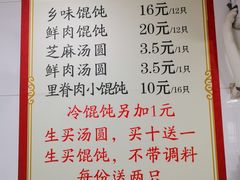 乡味馄饨 16元/12只
鲜肉馄饨 20元/12只
芝麻汤圆 3.5元/1只
鲜肉汤圆 3.5元/1只
里脊肉小馄饨 10元/16只
冷馄饨另加1元
生买汤圆，买十送一
生买馄饨，不带调料
每份送两只